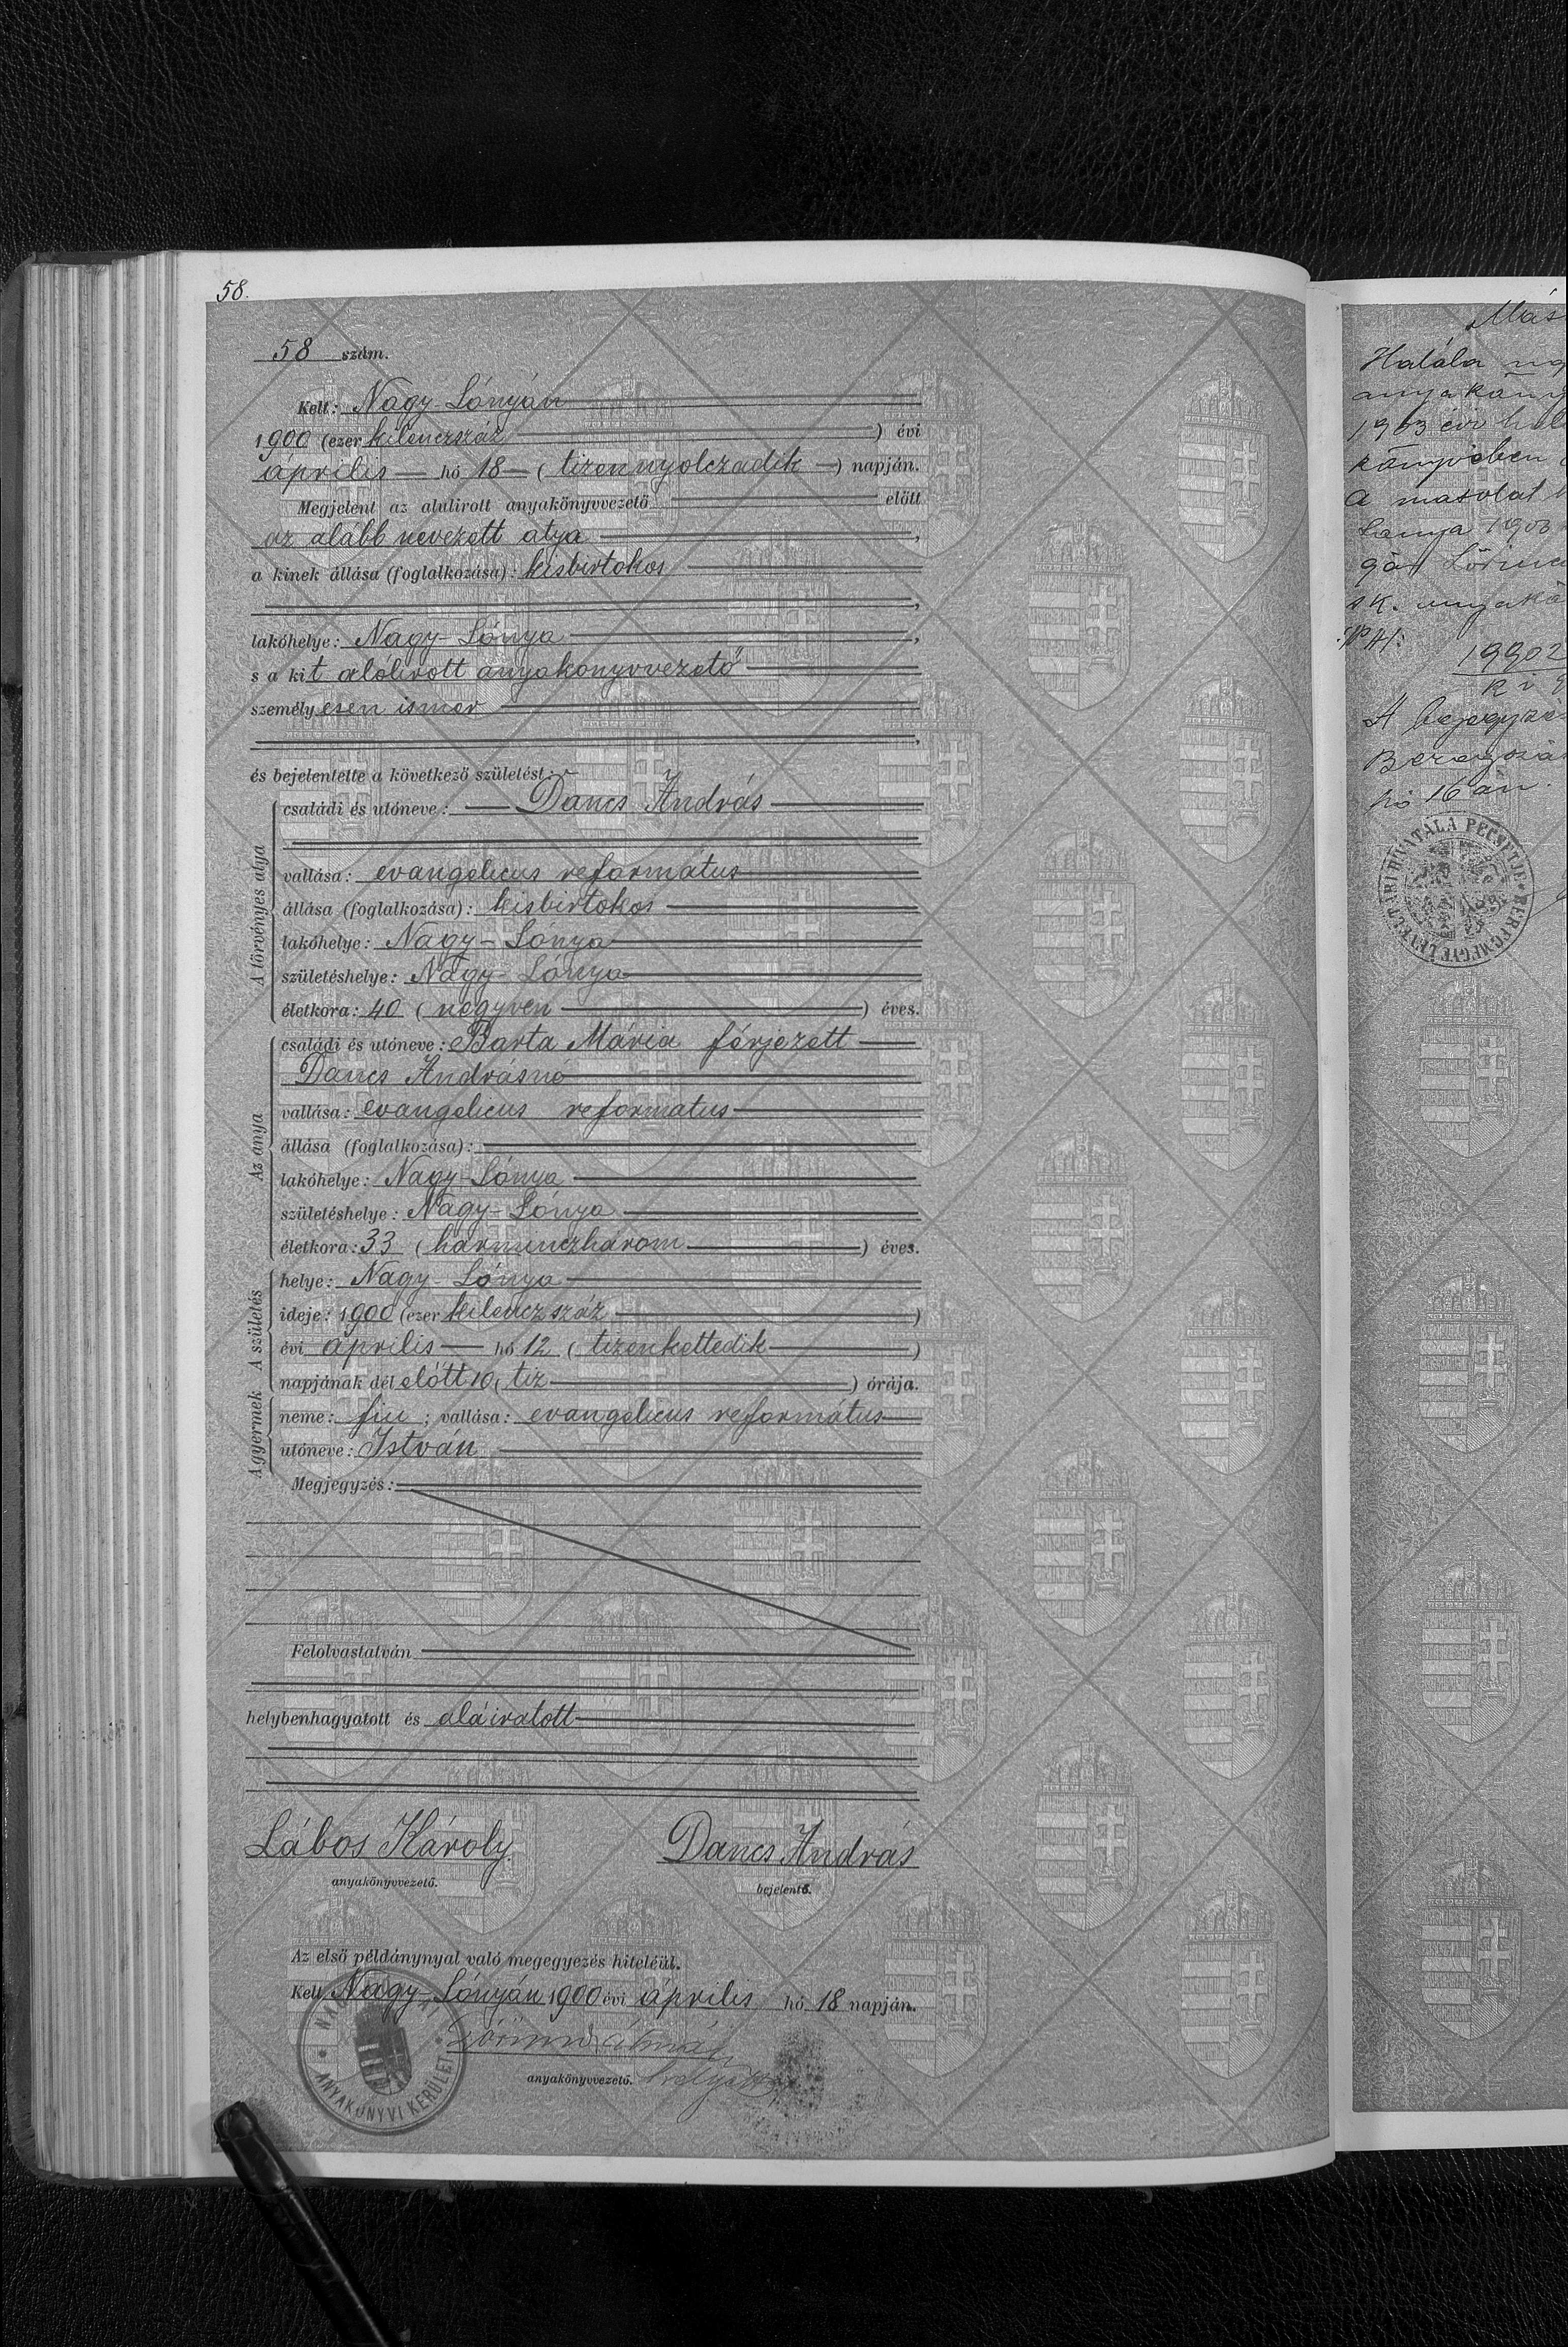 58.
58 szám.
Kelt: Nagy-Lónyán
1900 (ezer kilenczszáz) évi
április hó 18 (tizennyolczadik) napján.
Megjelent az alulirott anyakönyvvezető előtt
az alább nevezett atya,
a kinek állása (foglalkozása): kisbirtokos
,
lakóhelye: Nagy-Lónya,
s a kit alólirott anyakönyvvezető
személyesen ismer
,
és bejelentette a következő születést:
A törvényes atya
családi és utóneve: Dancs András
vallása: evangelicus református
állása (foglalkozása): kisbirtokos
lakóhelye: Nagy-Lónya
születéshelye: Nagy-Lónya
életkora: 40 (negyven) éves.
Az anya
családi és utóneve: Barta Mária férjezett
Dancs Andrásné
vallása: evangelicus reformatus
állása (foglalkozása):
lakóhelye: Nagy-Lónya
születéshelye: Nagy-Lónya
életkora: 33 (harminczhárom) éves.
A születés
helye: Nagy-Lónya
ideje: 1900 (ezer kilenczszáz)
évi április hó 12 (tizenkettedik)
napjának dél előtt 10 (tiz) órája.
A gyermek
neme: fiu; vallása: evangelicus református
utóneve: István
Megjegyzés:
Felolvastatván
helybenhagyatott és aláiratott
Lábos Károly
Dancs András
anyakönyvvezető.
bejelentő.
Az első példánynyal való megegyezés hiteléül.
Kelt Nagy-Lónyán 1900 évi április hó 18 napján.
anyakönyvvezető.
ANYAKÖNYVI KERÜLET
Halála
1903 évi
könyvében
a masolat
1903
sk.
19902
A
hó 16 án.